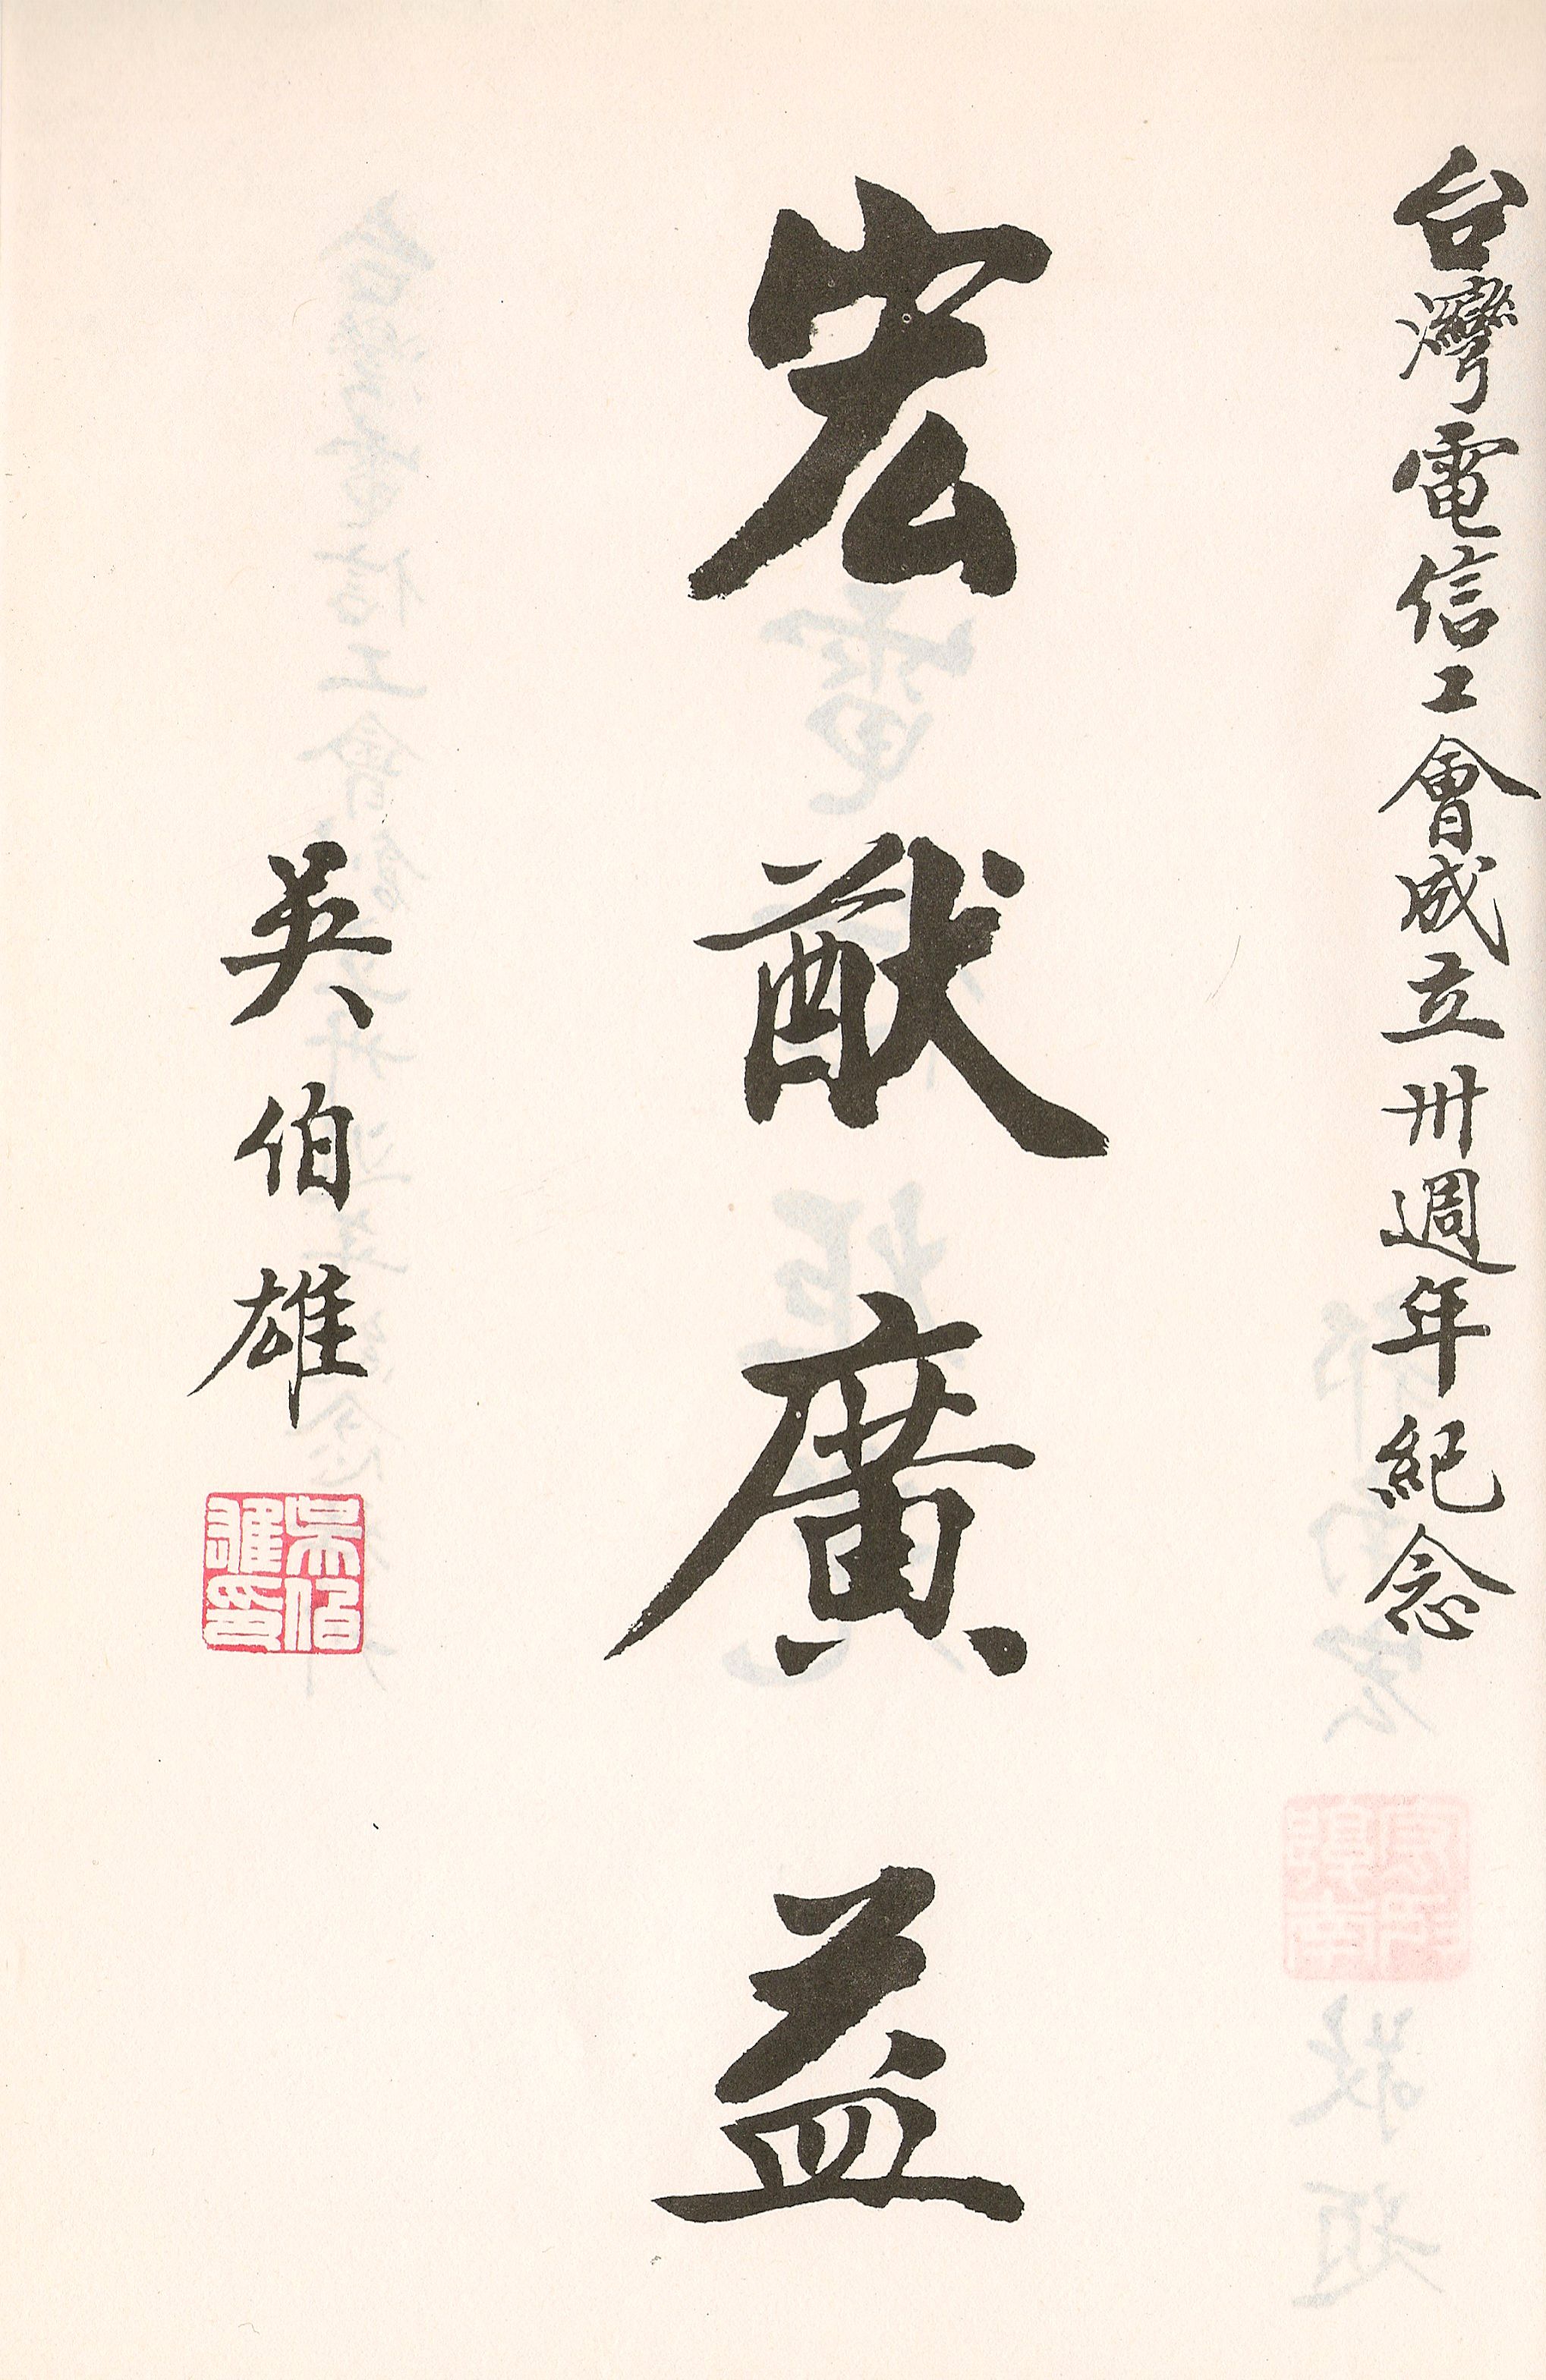 台灣電信工會成立卅週年紀念
宏猷廣益
吳伯雄
吳伯雄印